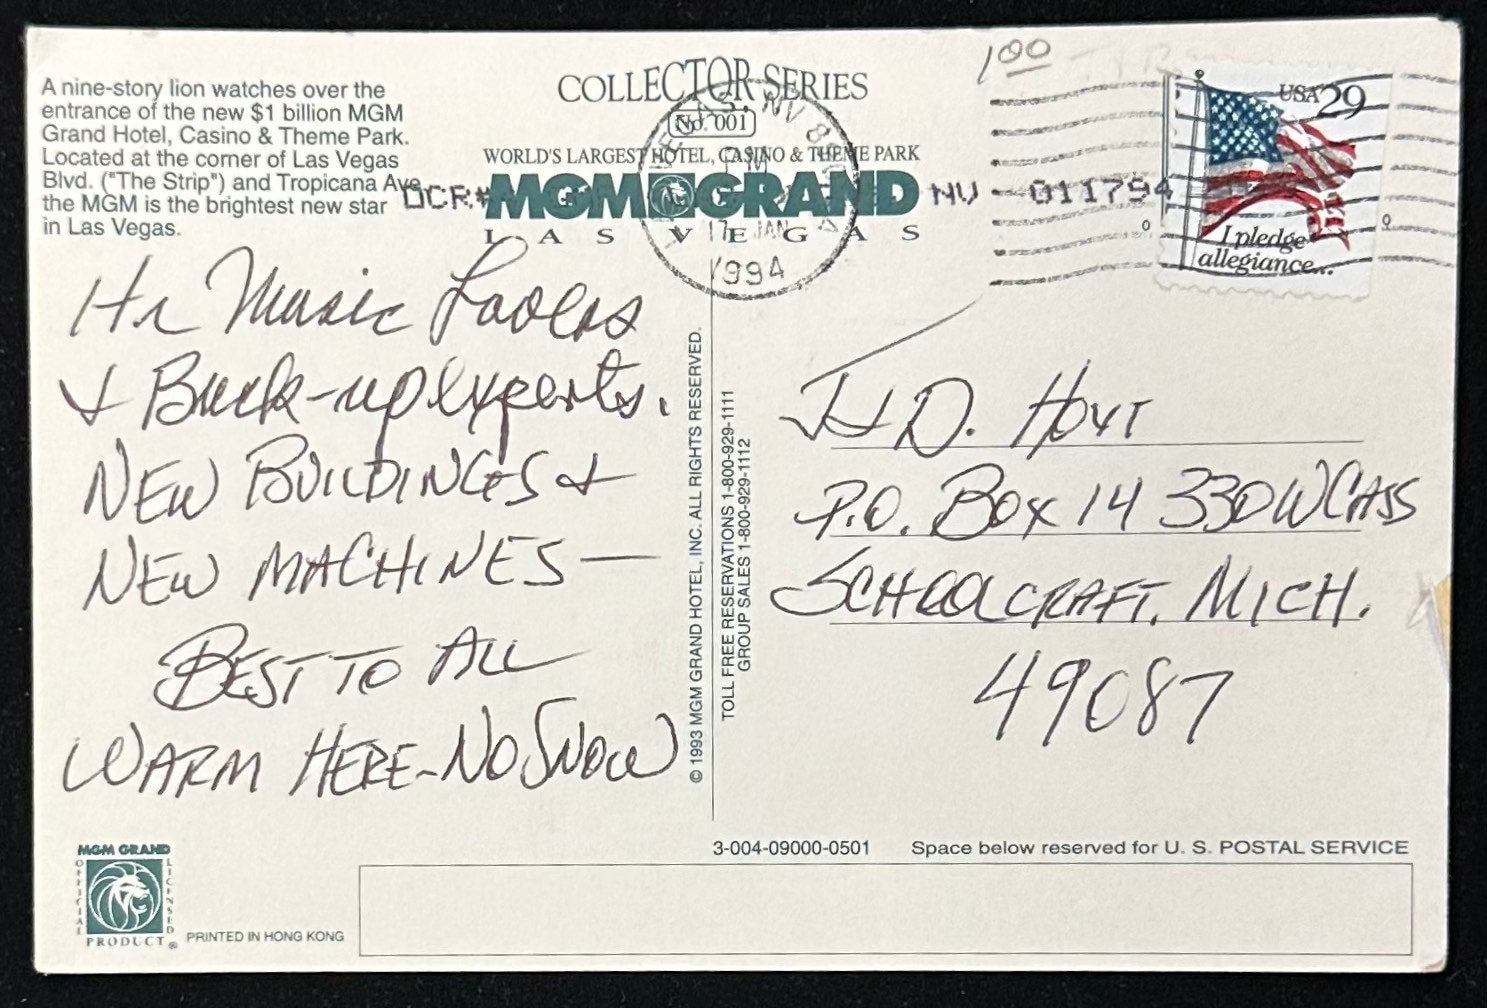 A nine-story lion watches over the
entrance of the new $1 billion MGM
Grand Hotel, Casino & Theme Park.
Located at the corner of Las Vegas
Blvd. ("The Strip") and Tropicana Ave
the MGM is the brightest new star
in Las Vegas.
COLLECTOR SERIES
No. 001
WORLD'S LARGEST HOTEL, CASINO & THEME PARK
MGM GRAND
LAS VEGAS
OCR#
NV 011794
NV
PM
17 JAN
1994
1.00
USA 29
I pledge
allegiance...
Hi Music Lovers
& Buck-up experts.
NEW BUILDINGS &
NEW MACHINES —
BEST TO ALL
WARM HERE - NO SNOW
© 1993 MGM GRAND HOTEL, INC. ALL RIGHTS RESERVED.
TOLL FREE RESERVATIONS 1-800-929-1111
GROUP SALES 1-800-929-1112
D. HOYT
P.O. BOX 14 330 W CASS
SCHOOLCRAFT, MICH.
49087
MGM GRAND
OFFICIAL
LICENSED
PRODUCT ®
PRINTED IN HONG KONG
3-004-09000-0501
Space below reserved for U. S. POSTAL SERVICE